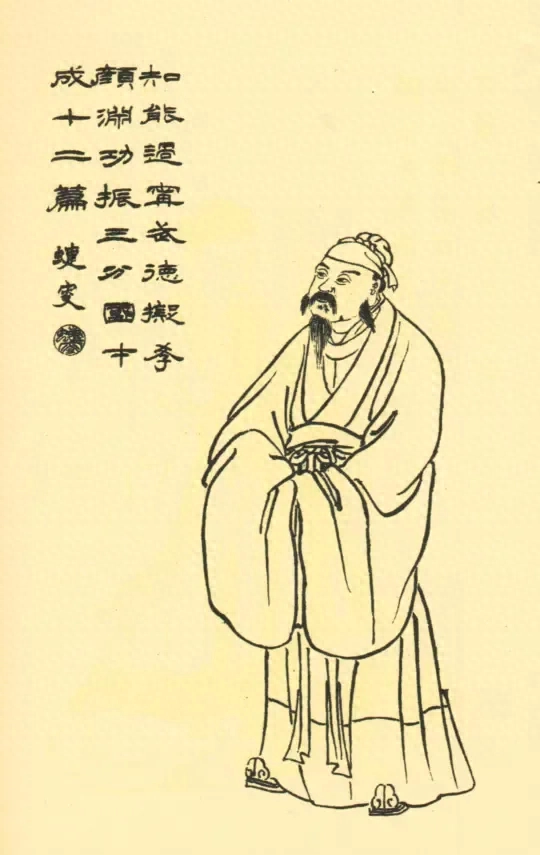 知能過甯武德擬孝
顏淵功振三分國才
成十二篇 蜨叟